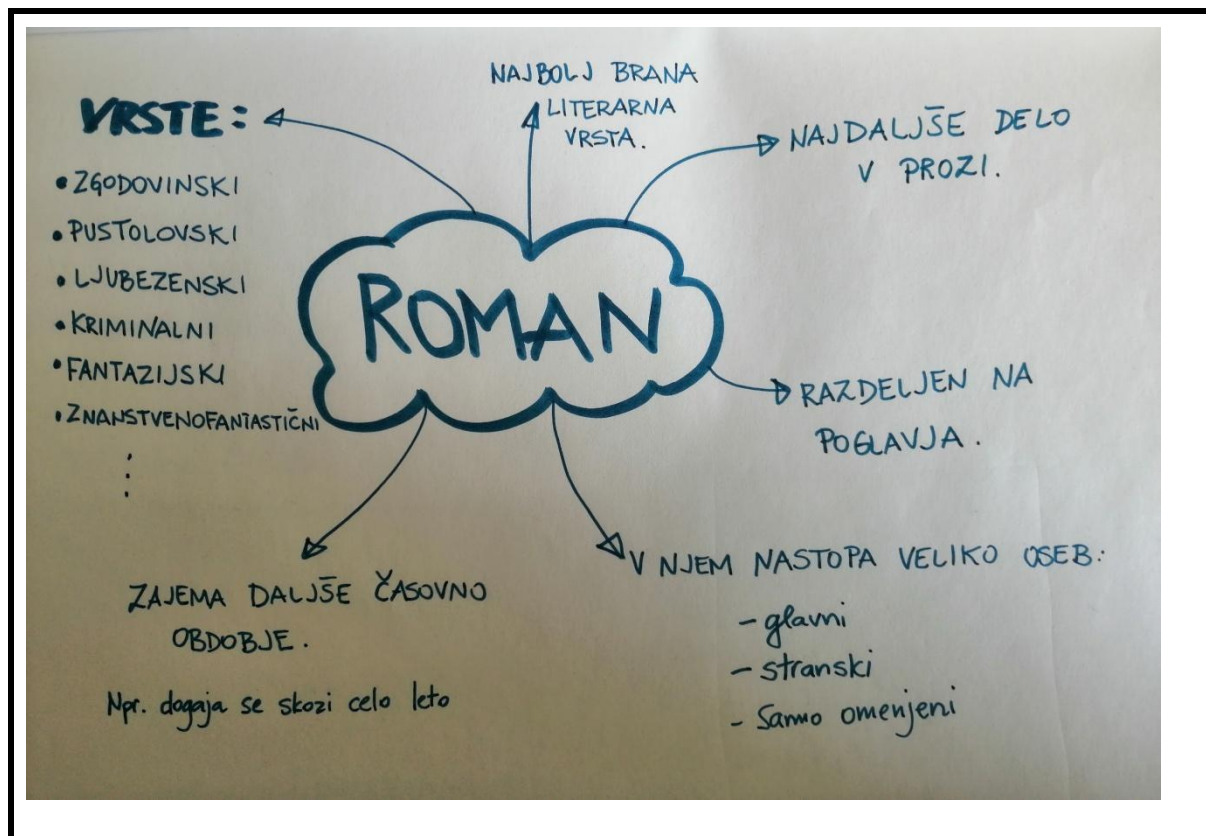 VRSTE:
• ZGODOVINSKI
• PUSTOLOVSKI
• LJUBEZENSKI
• KRIMINALNI
• FANTAZIJSKI
• ZNANSTVENOFANTASTIČNI
⋮
NAJBOLJ BRANA
LITERARNA
VRSTA.
NAJDALJŠE DELO
V PROZI.
ROMAN
RAZDELJEN NA
POGLAVJA.
ZAJEMA DALJŠE ČASOVNO
OBDOBJE.
Npr. dogaja se skozi celo leto
V NJEM NASTOPA VELIKO OSEB:
- glavni
- stranski
- Samo omenjeni